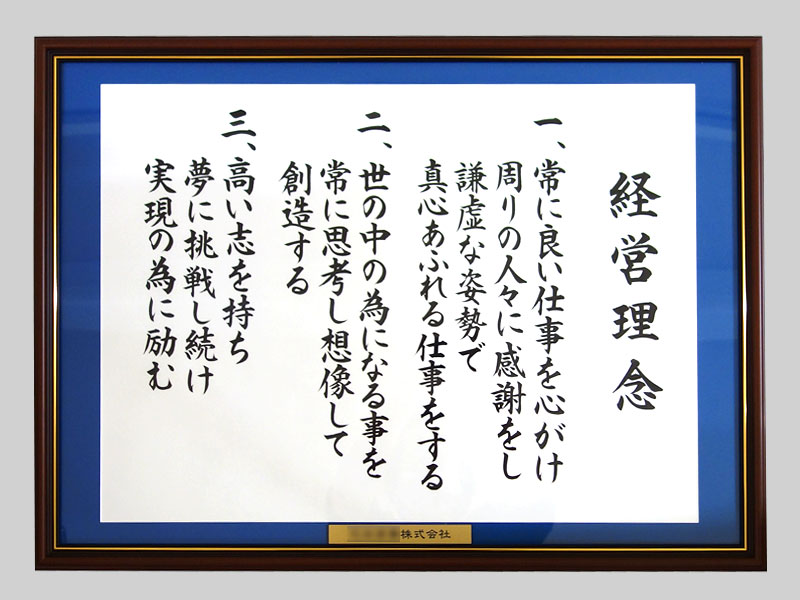 経営理念
一、常に良い仕事を心がけ
周りの人々に感謝をし
謙虚な姿勢で
真心あふれる仕事をする
二、世の中の為になる事を
常に思考し想像して
創造する
三、高い志を持ち
夢に挑戦し続け
実現の為に励む
株式会社